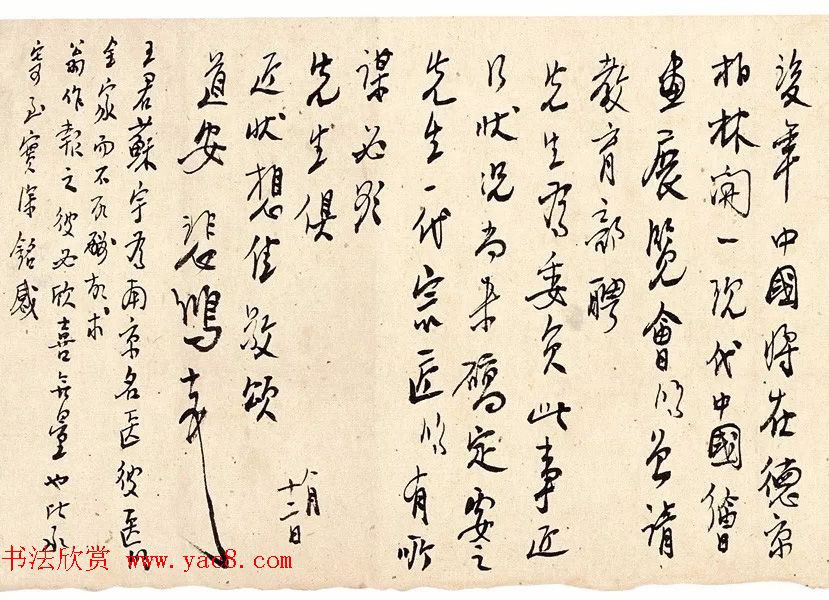 後年中國將在德京
柏林開一現代中國繪
畫展覽會頃已請
教育部聘
先生爲委員此事近
日狀況尚未確定要之
先生一代宗匠頃有所
謀必影
先生俱
近狀想佳敬頌
道安 悲鴻
八月
十二日
王君蘇宇爲南京名醫彼醫
全家而不取酬故求
翁作報之彼必欣喜無量也
寄到實深銘感
书法欣赏 www.yac8.com